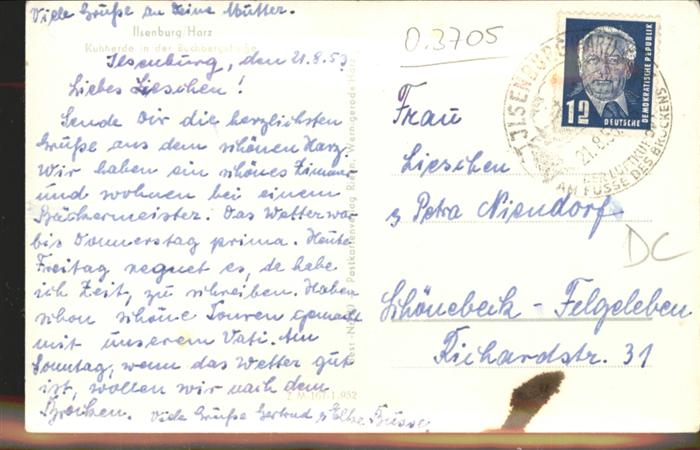 Viele Grüße an Deine Mutter.
Ilsenburg/Harz
Kuhherde in der Buchbergstraße
Ilsenburg, den 21.8.53
Liebes Lieschen!
Sende Dir die herzlichsten
Grüße aus dem schönen Harz.
Wir haben ein schönes Zimmer
und wohnen bei einem
Bäckermeister. Das Wetter war
bis Donnerstag prima. Heute
Freitag regnet es, da habe
ich Zeit, zu schreiben. Haben
schon schöne Touren gemacht
mit unserem Vati. Am
Sonntag, wenn das Wetter gut
ist, wollen wir nach dem
Brocken. Viele Grüße Gertrud
Postkartenverlag Wernigerode-Harz
Z M-167-1.952
0.3705
12
DEUTSCHE
DEMOKRATISCHE REPUBLIK
ILSENBURG
21.8.53
DER LUFTKURORT
AM FUSSE DES BROCKENS
Frau
Lieschen
Petra Niendorf
DC
Schönebeck - Felgeleben
Richardstr. 31